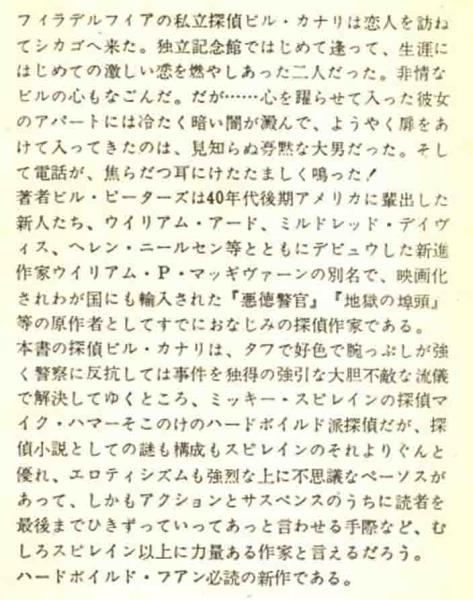 フィラデルフィアの私立探偵ビル・カナリは恋人を訪ね
てシカゴへ来た。独立記念館ではじめて逢って、生涯に
はじめての激しい恋を燃やしあった二人だった。非情な
ビルの心もなごんだ。だが……心を躍らせて入った彼女
のアパートには冷たく暗い闇が澱んで、ようやく扉をあ
けて入ってきたのは、見知らぬ寡黙な大男だった。そし
て電話が、焦らだつ耳にけたたましく鳴った！
著者ビル・ピーターズは40年代後期アメリカに輩出した
新人たち、ウイリアム・アード、ミルドレッド・デイヴ
ィス、ヘレン・ニールセン等とともにデビュウした新進
作家ウイリアム・P・マッギヴァーンの別名で、映画化
されわが国にも輸入された『悪徳警官』『地獄の埠頭』
等の原作者としてすでにおなじみの探偵作家である。
本書の探偵ビル・カナリは、タフで好色で腕っぷしが強
く警察に反抗しては事件を独得の強引な大胆不敵な流儀
で解決してゆくところ、ミッキー・スピレインの探偵マ
イク・ハマーそこのけのハードボイルド派探偵だが、探
偵小説としての謎も構成もスピレインのそれよりぐんと
優れ、エロティシズムも強烈な上に不思議なペーソスが
あって、しかもアクションとサスペンスのうちに読者を
最後までひきずっていってあっと言わせる手際など、む
しろスピレイン以上に力量ある作家と言えるだろう。
ハードボイルド・フアン必読の新作である。